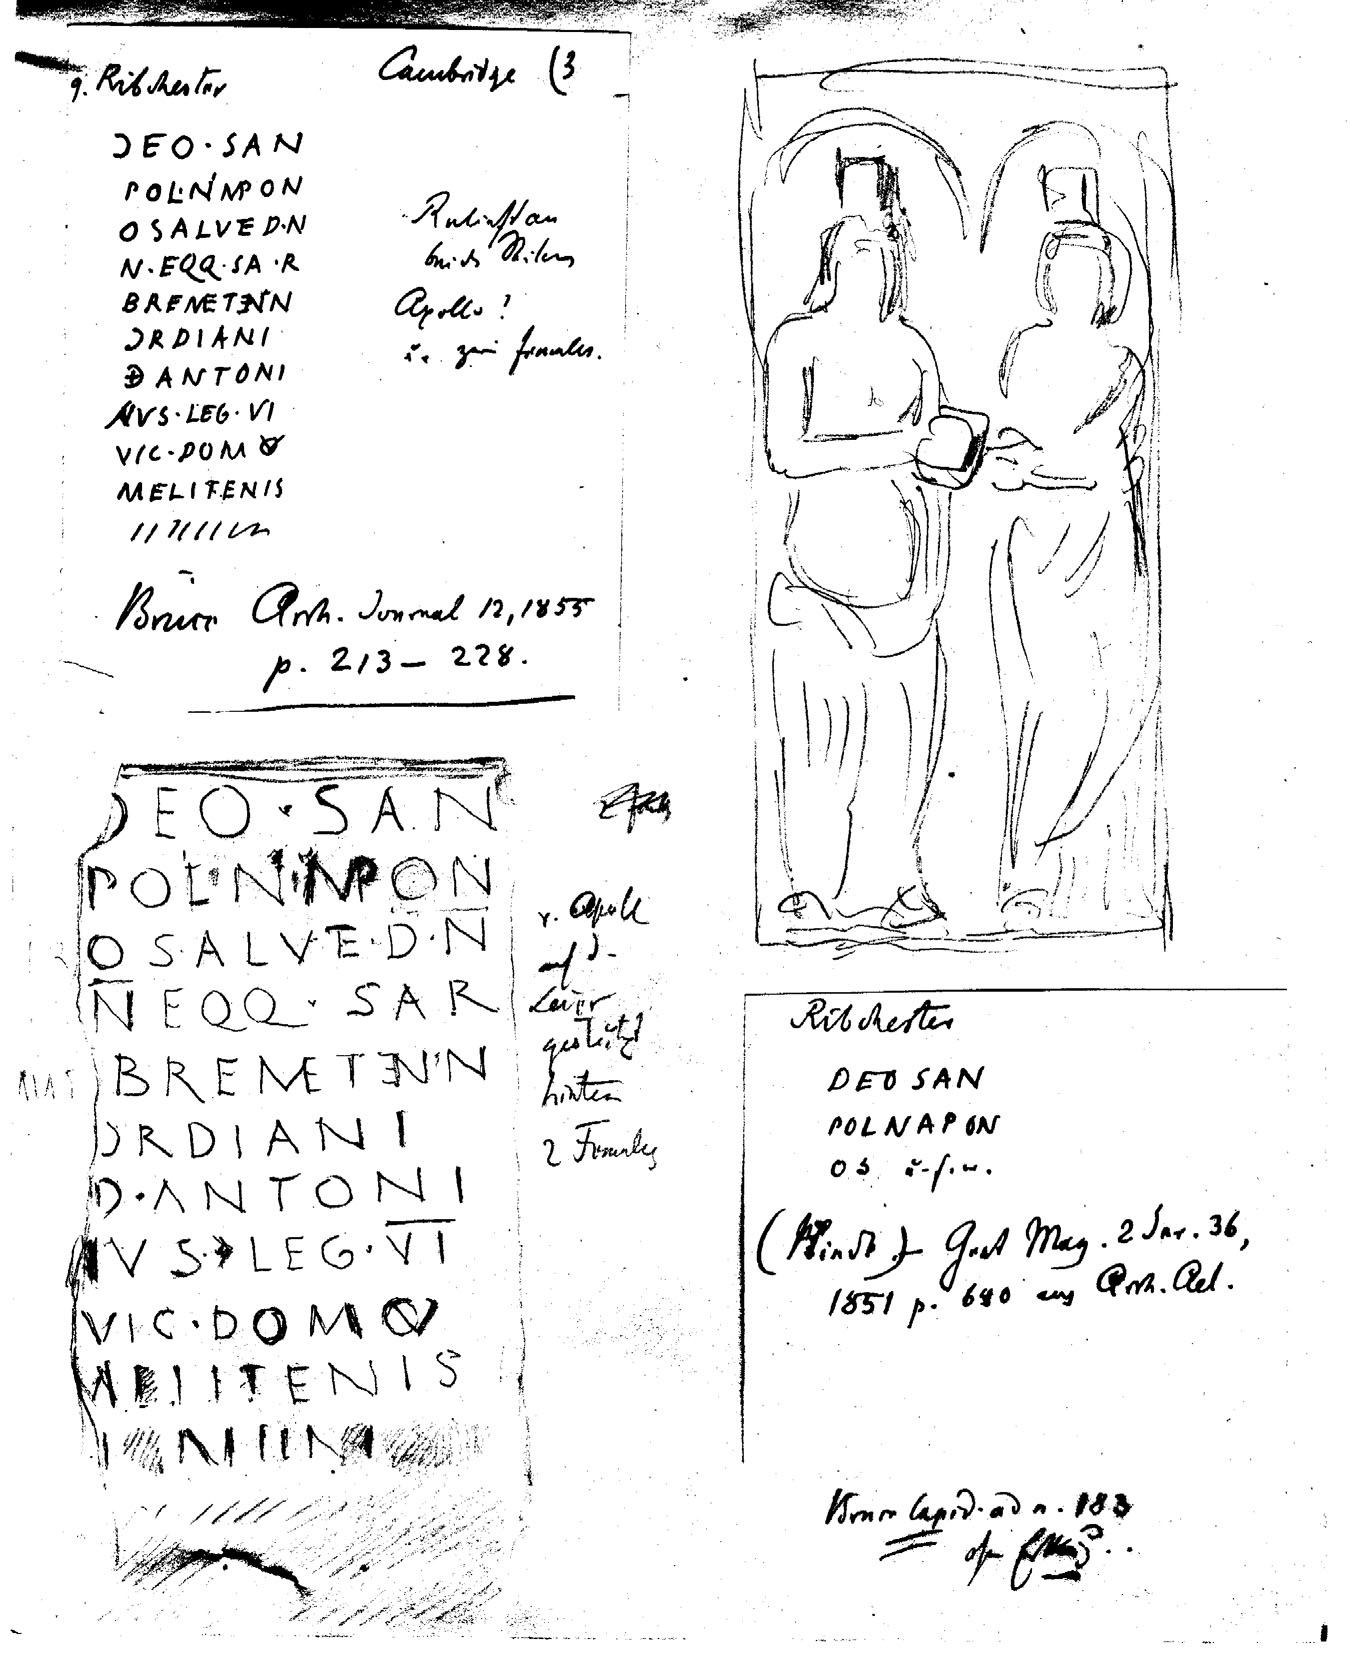 9. Ribchester
Cambridge (3
DEO·SAN
POLNMPON
OSALVED·N
N·EQQ·SA·R
BREMETENN
ORDIANI
Apollo?
zwei females.
D ANTONI
NVS·LEG·VI
VIC·DOM
MELITENIS
Bruce Arch. Journal 12, 1855
p. 213 – 228.
DEO·SAN
POLNMPON
OSALVE·D·N
NEQQ·SAR
BREMETENN
ORDIANI
D·ANTONI
IVS·LEG·VI
VIC·DOM
MELITENIS
r. Apoll
auf d.
Leier
gestützt
hinten
2 Females
Ribchester
DEO SAN
POLNAPON
OS u.s.w.
Gent Mag. 2 Ser. 36,
1851 p. 680 aus Arch. Ael.
Bruce lapid. ad n. 183